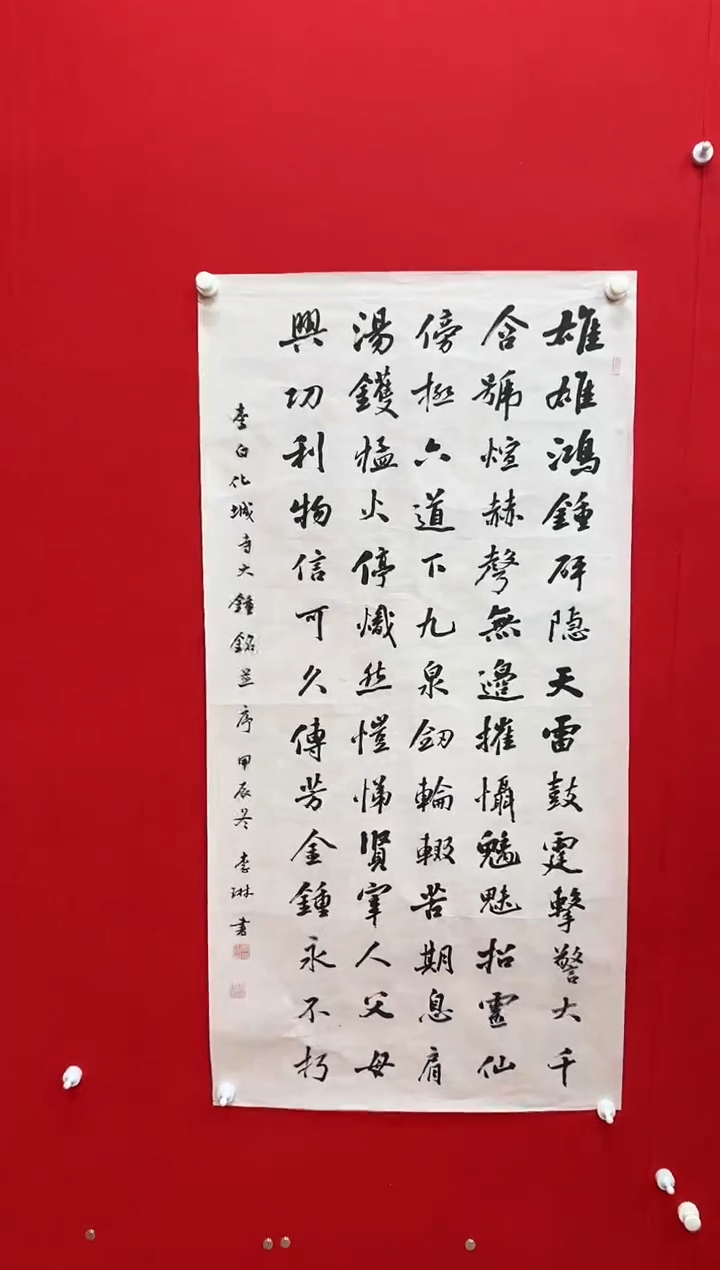 雄雄鴻鍾砰隐天雷鼓霆擊警大千
含號煊赫聲無邊摧慑魑魅招靈仙
傍極六道下九泉釰輪輟苦期息肩
湯鑊猛火停熾然愷悌賢宰人父母
興功利物信可久傳芳金鍾永不朽
李白化城寺大鍾銘並序甲辰冬李琳書